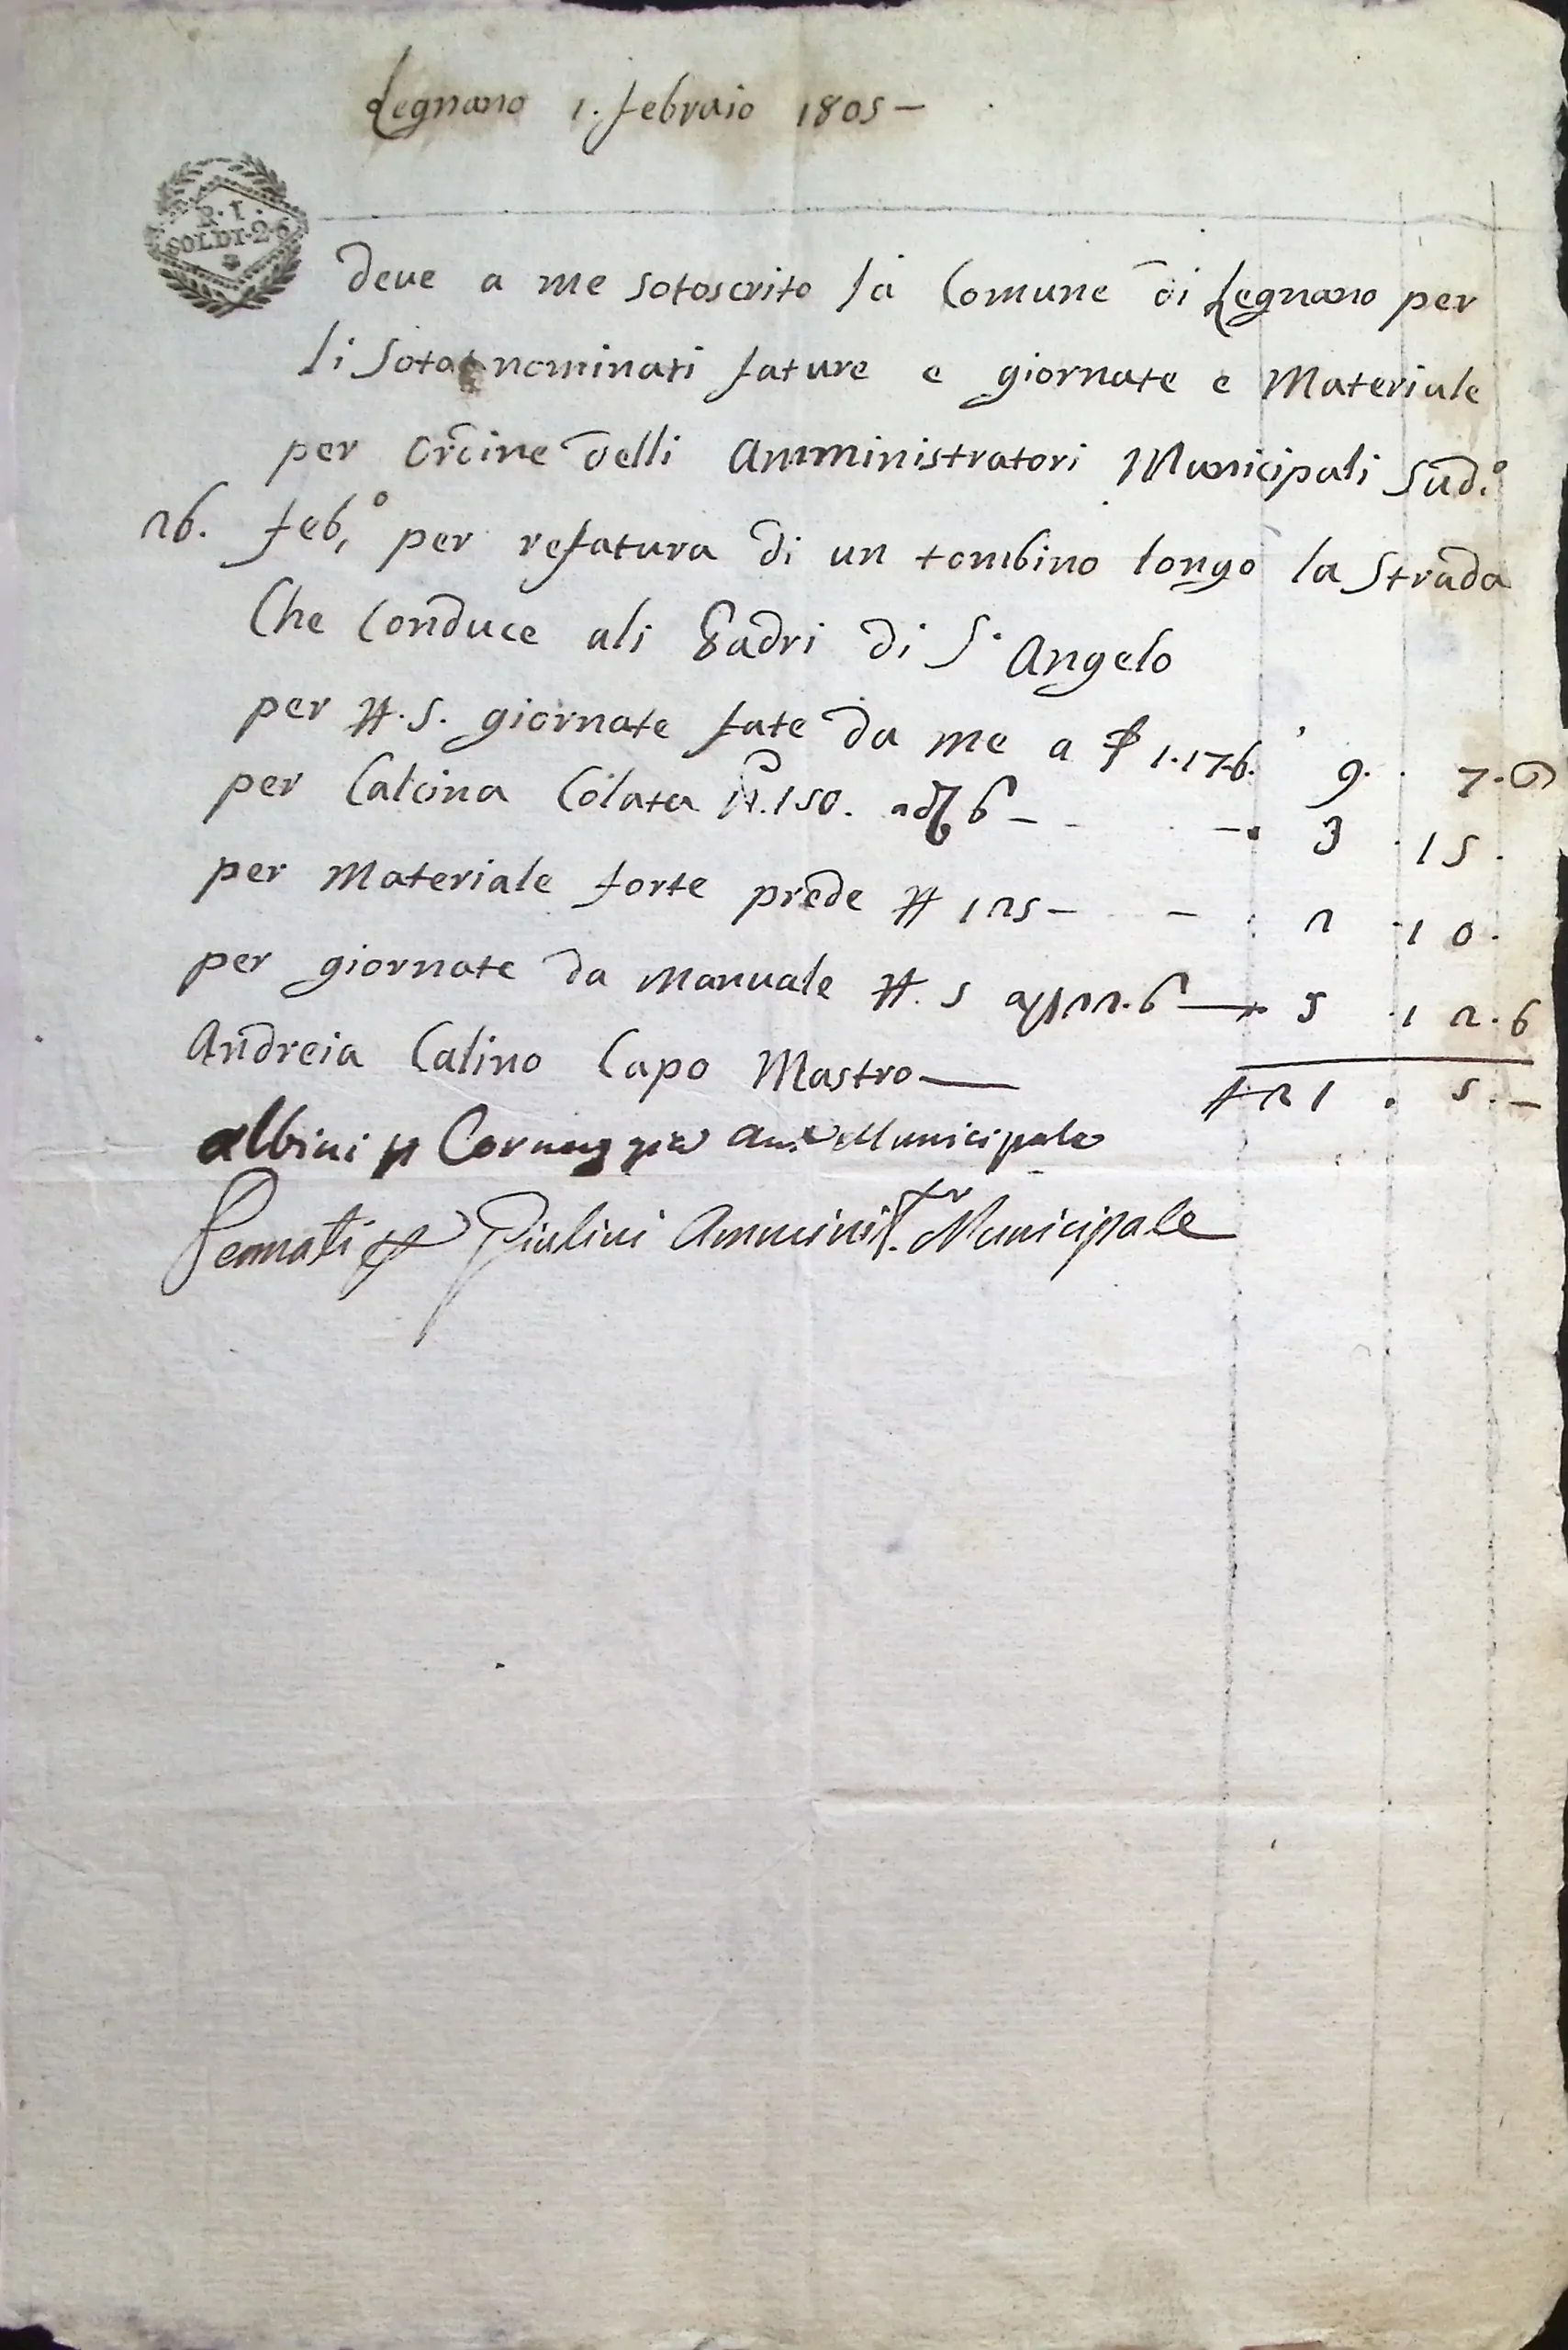 Legnano 1. febraio 1805 –
R. I.
SOLDI. 26
deve a me sotoscrito la Comune di Legnano per
li Sotonominati fature e giornate e Materiale
per Ordine delli Amministratori Municipali Sud.º
26. feb.º per refatura di un tombino longo la Strada
Che Conduce ali Padri di S. Angelo
per N. 5. giornate fate da me a £ 1.17.6. 9. 7.6
per Calcina Colata 150. 6 – 3 . 15 .
per Materiale forte prede N 125 – – 2 . 10 .
per giornate da Manuale N. 5 22.6 — 5 . 12 . 6
Andreia Calino Capo Mastro —
21 . 5 . –
albini Municipale
Pennati Giulini Amminis.tr Municipale